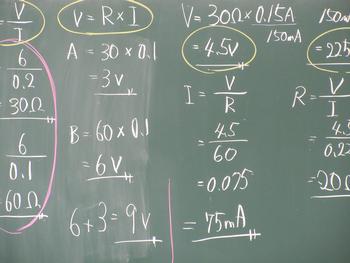 V
I
6
0.2
30Ω
6
0.1
60Ω
V = R × I
A = 30 × 0.1
= 3V
B = 60 × 0.1
= 6V
6 + 3 = 9V
V = 30Ω × 0.15A
150mA
= 4.5V
I = V
R
= 4.5
60
= 0.075
= 75mA
150m
= 225
R = V
I
= 4.5